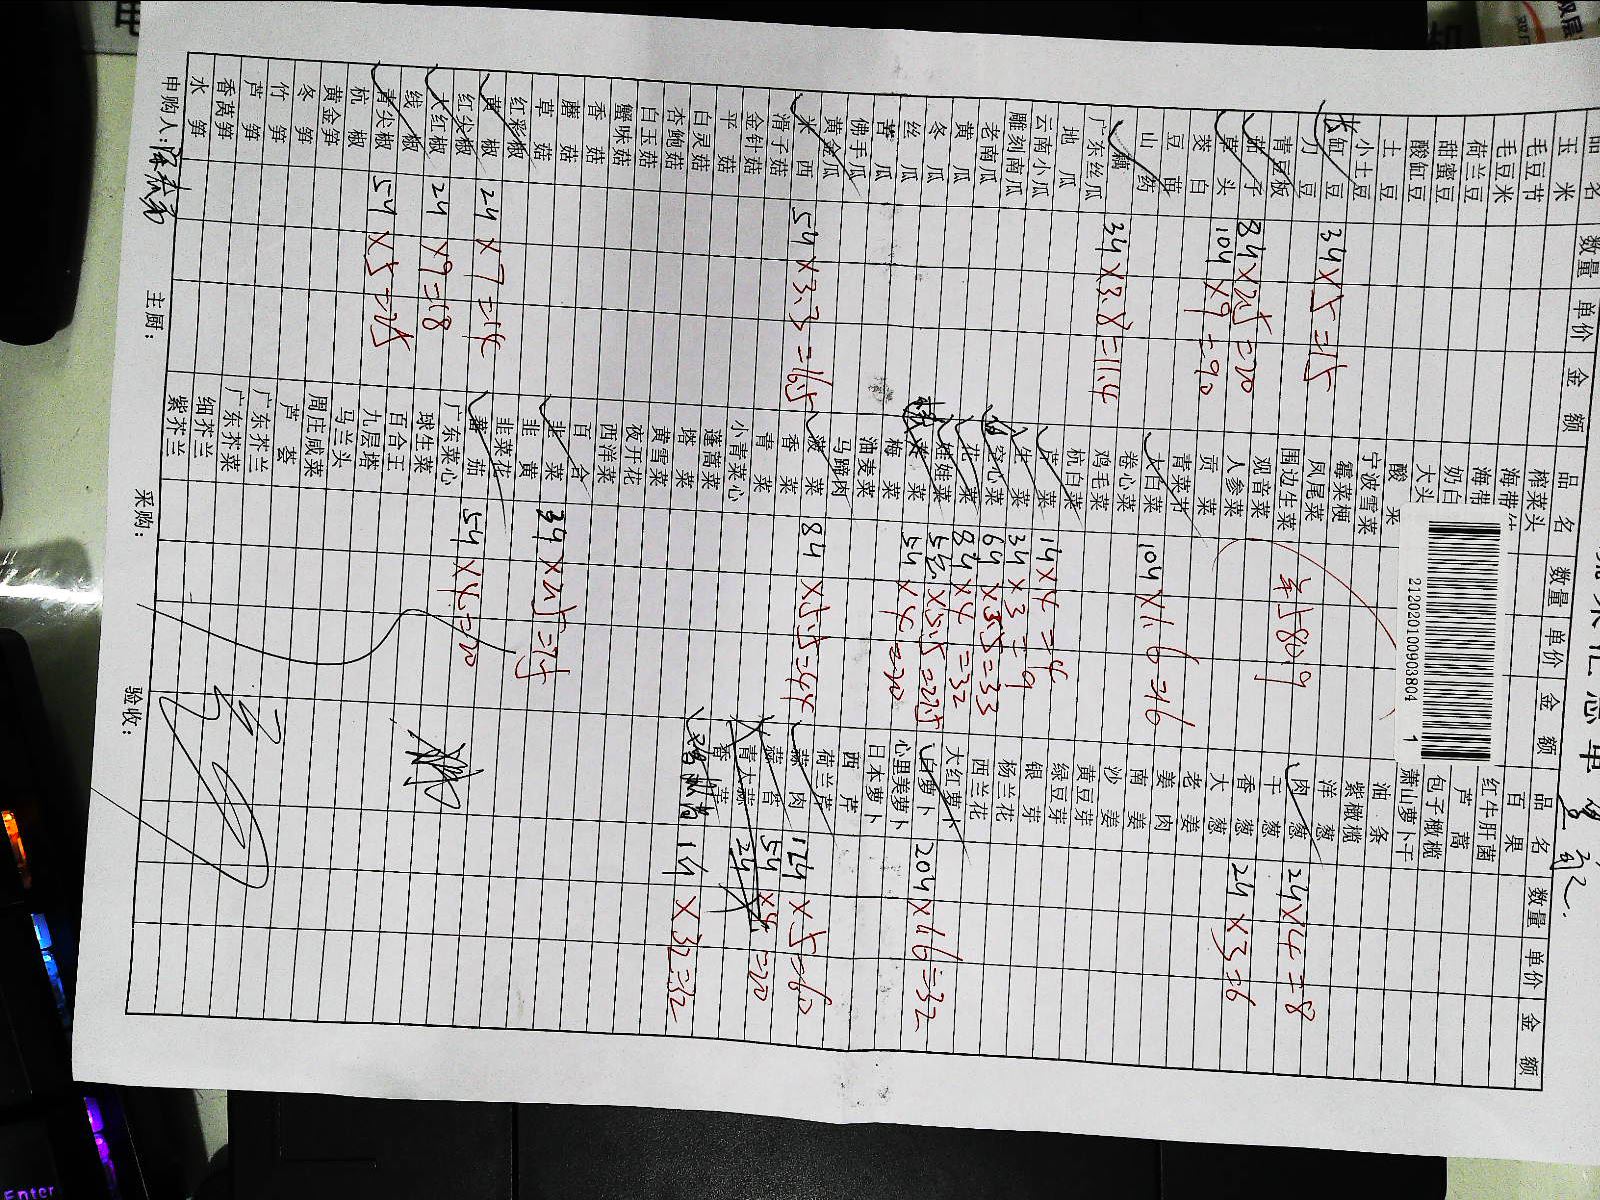 品名 数量 单价 金额
玉米
毛豆节
毛豆米
荷兰豆
甜蜜豆
酸缸豆
土豆
小土豆
长缸豆 3斤×5=15
刀豆
青豆板
茄子 8斤×2.5=20
草头 10斤×9=90
茭白
豆苗
山药
藕 3斤×3.8=11.4
广东丝瓜
地瓜
云南小瓜
雕刻南瓜
老南瓜
黄瓜
冬瓜
丝瓜
苦瓜
佛手瓜
黄金瓜
米西 5斤×3.3=16.5
滑子菇
金针菇
平菇
白灵菇
杏鲍菇
白玉菇
蟹味菇
香菇
蘑菇
草菇
红彩椒
黄椒 2斤×7=14
红尖椒
大红椒 2斤×9=18
线椒
青尖椒 5斤×5=25
杭椒
黄金笋
冬笋
竹笋
芦笋
香莴笋
水笋
品名 数量 单价 金额
榨菜头
海带结
海带
奶白
大头
酸菜
宁波雪菜
霉菜梗
凤尾菜
围边生菜
观音菜
人参菜
贡菜
青菜节
大白菜 10斤×1.6=16
卷心菜
鸡毛菜
杭白菜
芹菜 1斤×4=4
生菜 3斤×3=9
空心菜 6斤×5.5=33
花菜 8斤×4=32
娃娃菜
菜 5斤×4=20
梅菜
油麦菜
马蹄肉
菠菜 8斤×5.5=44
香菜
青菜
小青菜心
蓬蒿菜
塔菜
黄雪菜
夜开花
西洋菜
百合
韭菜 3斤×2.5=7.5
韭黄
韭菜花
番茄 5斤×4=20
广东菜心
球生菜
百合王
九层塔
马兰头
周庄咸菜
芦荟
广东芥兰
广东芥菜
细芥兰
紫芥兰
580.9
品名 数量 单价 金额
百果
红牛肝菌
芦蒿
包子橄榄
萧山萝卜干
油条
紫橄榄
洋葱
肉葱 2斤×4=8
干葱
香葱 2斤×3=6
大葱
老姜
姜肉
南姜
沙姜
黄豆芽
绿豆芽
银芽
杨兰花
西兰花
大红萝卜
白萝卜 20斤×1.6=32
心里美萝卜
日本萝卜
西芹
荷兰芹
蒜肉 12斤×5=60
蒜苔 5斤×4=20
青大蒜 2斤
香芹
1斤×32=32
2120201009038041
申购人:
主厨:
采购:
验收:
Enter